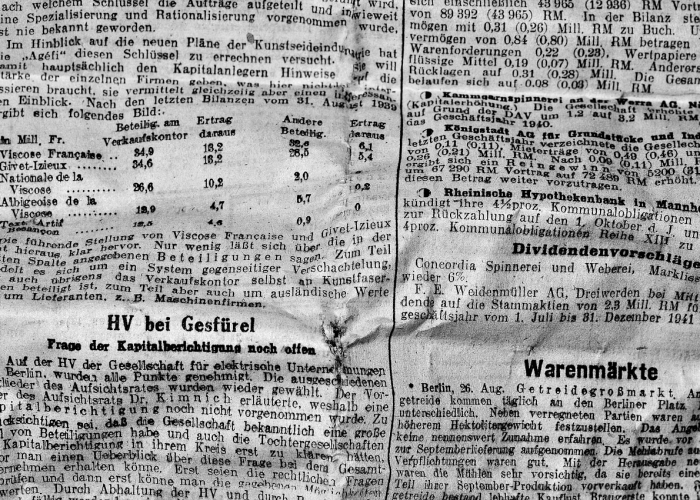 nach welchem Schlüssel die Aufträge aufgeteilt und inwieweit
eine Spezialisierung und Rationalisierung vorgenommen wurde,
ist nie bekannt geworden.
Im Hinblick auf die neuen Pläne der Kunstseideindu
die „Agéfi" diesen Schlüssel zu errechnen versucht. Sie will
damit hauptsächlich den Kapitalanlegern Hinweise
stärke der einzelnen Firmen geben, was hier nicht
ssieren braucht, sie vermittelt gleichzeitig
en Einblick. Nach den letzten Bilanzen vom 31. August 1939
rgibt sich folgendes Bild:
Beteilig. am Ertrag Andere Ertrag
in Mill. Fr. Verkaufskontor daraus Beteilig. daraus
Viscose Française 34,9 18,2 6,1
Givet-Izieux 34,6 18,2 28,5 5,4
Nationale de la
Viscose 26,6 10,2 2,0 0,2
Albigeoise de la
Viscose 12,9 4,7 5,7 0
Besançon 4,6 0,9 0
Die führende Stellung von Viscose Française und Givet-Izieux
hieraus klar hervor. Nur wenig läßt sich über die in der
ten Spalte angegebenen Beteiligungen sagen. Zum Teil
delt es sich um ein System gegenseitiger Verschachtelung,
auch übrigens das Verkaufskontor selbst an Kunstfaser-
en beteiligt ist, zum Teil aber auch um ausländische Werte
um Lieferanten, z. B. Maschinenfirmen.
HV bei Gesfürel
Frage der Kapitalberichtigung noch offen
Auf der HV der Gesellschaft für elektrische Unternehmungen
Berlin, wurden alle Punkte genehmigt. Die ausgeschiedenen
lieder des Aufsichtsrates wurden wieder gewählt. Der Vor-
er des Aufsichtsrats Dr. Kimnich erläuterte, weshalb eine
pitalberichtigung noch nicht vorgenommen wurde. Zu
cksichtigen sei, daß die Gesellschaft bekanntlich eine große
von Beteiligungen habe und auch die Tochtergesellschaften
Kapitalberichtigung in ihrem Kreis erst zu klären hätten,
or man einen Ueberblick über diese Frage bei dem Gesamt-
ernehmen erhalten könne. Erst seien die rechtlichen Fragen
prüfen und dann erst könne man die
werten. Durch Abhaltung der HV und durch
sich einschließlich 43 965 (12 936) RM Vor
von 89 392 (43 965) RM. In der Bilanz sin
mögen mit 0,31 (0,26) Mill. RM zu Buch. U
vermögen von 0,84 (0,80) Mill. RM betragen
Warenforderungen 0,22 (0,23), Wertpapiere
flüssige Mittel 0,19 (0,07) Mill. RM. Anderer
Rücklagen auf 0,31 (0,28) Mill. RM. Die Gesam
belaufen sich auf 0,08 (0,03) Mill. RM.
Kammgarnspinnerei an der Worra AG,
(Kapitalerhöhung.) Die Gesellschaft
auf Grund der DAV um 1,2 auf 3,2 Mill. RM
das Geschäftsjahr 1940.
Königstadt AG für Grundstücke und In
letzten Geschäftsjahr verzeichnete die Gesellsch
von 0,11 (0,11), Mieterträge von 0,49 (0,46) un
0,26 (0,21) Mill. RM. Nach 0,09 (0,11) Mill.
ergibt sich ein Reingewinn von 5200
um 67 290 RM Vortrag auf 72 486 RM erhöht,
diesen Betrag weiter vorzutragen.
Rheinische Hypothekenbank in Mannhe
kündigt ihre 4½proz. Kommunalobligationen
zur Rückzahlung auf den 1. Oktober d. J. un
4proz. Kommunalobligationen Reihe XIII zu
Dividendenvorschläge
Concordia Spinnerei und Weberei, Marklissa
wieder 6%.
F. E. Weidenmüller AG, Dreiwerden bei Mitt
dende auf die Stammaktien von 2,3 Mill. RM fü
geschäftsjahr vom 1. Juli bis 31. Dezember 1941
Warenmärkte
* Berlin, 26. Aug. Getreidegroßmarkt. An
getreide kommen täglich an den Berliner Platz
unterschiedlich. Neben verregneten Partien waren
höherem Hektolitergewicht festzustellen. Das Ange
keine nennenswert Zunahme erfahren. Es wurde vor
zur Septemberlieferung aufgenommen. Die Mehlabrufe
Verpflichtungen waren gut. Mit der Herausgabe
waren die Mühlen sehr vorsichtig, da sie bereits ein
Teil ihrer September-Produktion vorverkauft haben.
getreide bestand lebhafte Kauflust Braugerste